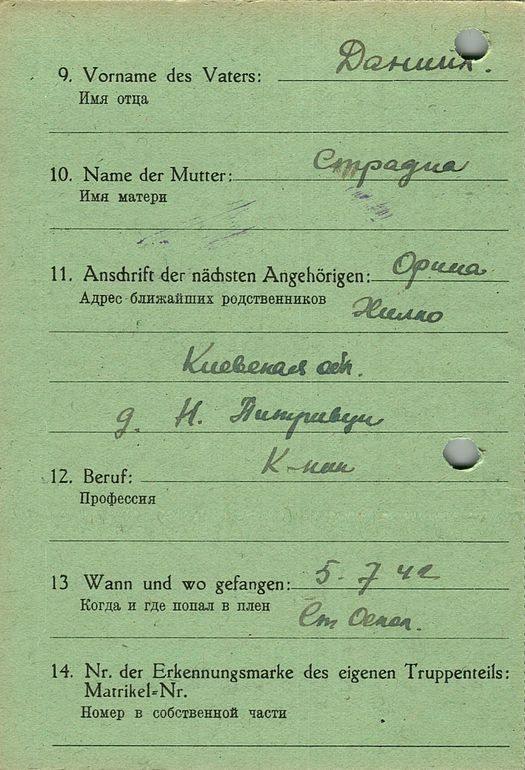 9. Vorname des Vaters: Даниил.
Имя отца
10. Name der Mutter:
Имя матери
11. Anschrift der nächsten Angehörigen: Орина
Адрес ближайших родственников Хилко
Киевская обл.
д. Н. Питривци
12. Beruf:
Профессия
13 Wann und wo gefangen: 5. 7 42
Когда и где попал в плен Ст Оскол.
14. Nr. der Erkennungsmarke des eigenen Truppenteils:
Matrikel-Nr.
Номер в собственной части